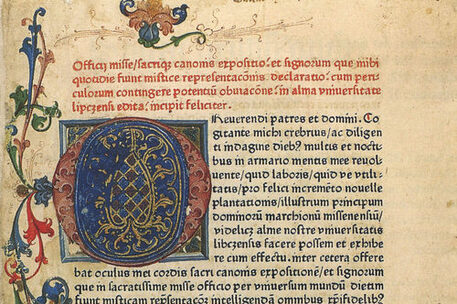 Officij misse/sacriqꝫ canonis expositio/et signorum que inibi
quotidie fiunt mistice representacõnis declaratio/cum peri
culorum contingere potentiũ obuiacõne/in alma vniuersitate
lipczensi edita/incipit feliciter.
Reuerendi patres et domini. Co
gitante michi crebrius/ac diligen
ti indagine diebꝰ multis et nocti
bus in armario mentis mee reuol
uente/quid laboris/quid ve vtili-
tatis/pro felici incremẽto nouelle
plantationis/illustrium principum
dominoꝝ marchionũ missenensiũ/
videlicꝫ alme nostre vniuersitatis
libczensis facere possem et exhibe
re cum effectu. inter cetera offere
bat oculus mei cordis sacri canonis expositionẽ/et signorum
que in sacratissime misse officio per vniuersum mundũ dietim
fiunt misticam rep̃sẽtacõꝫ intelligendã omnibus